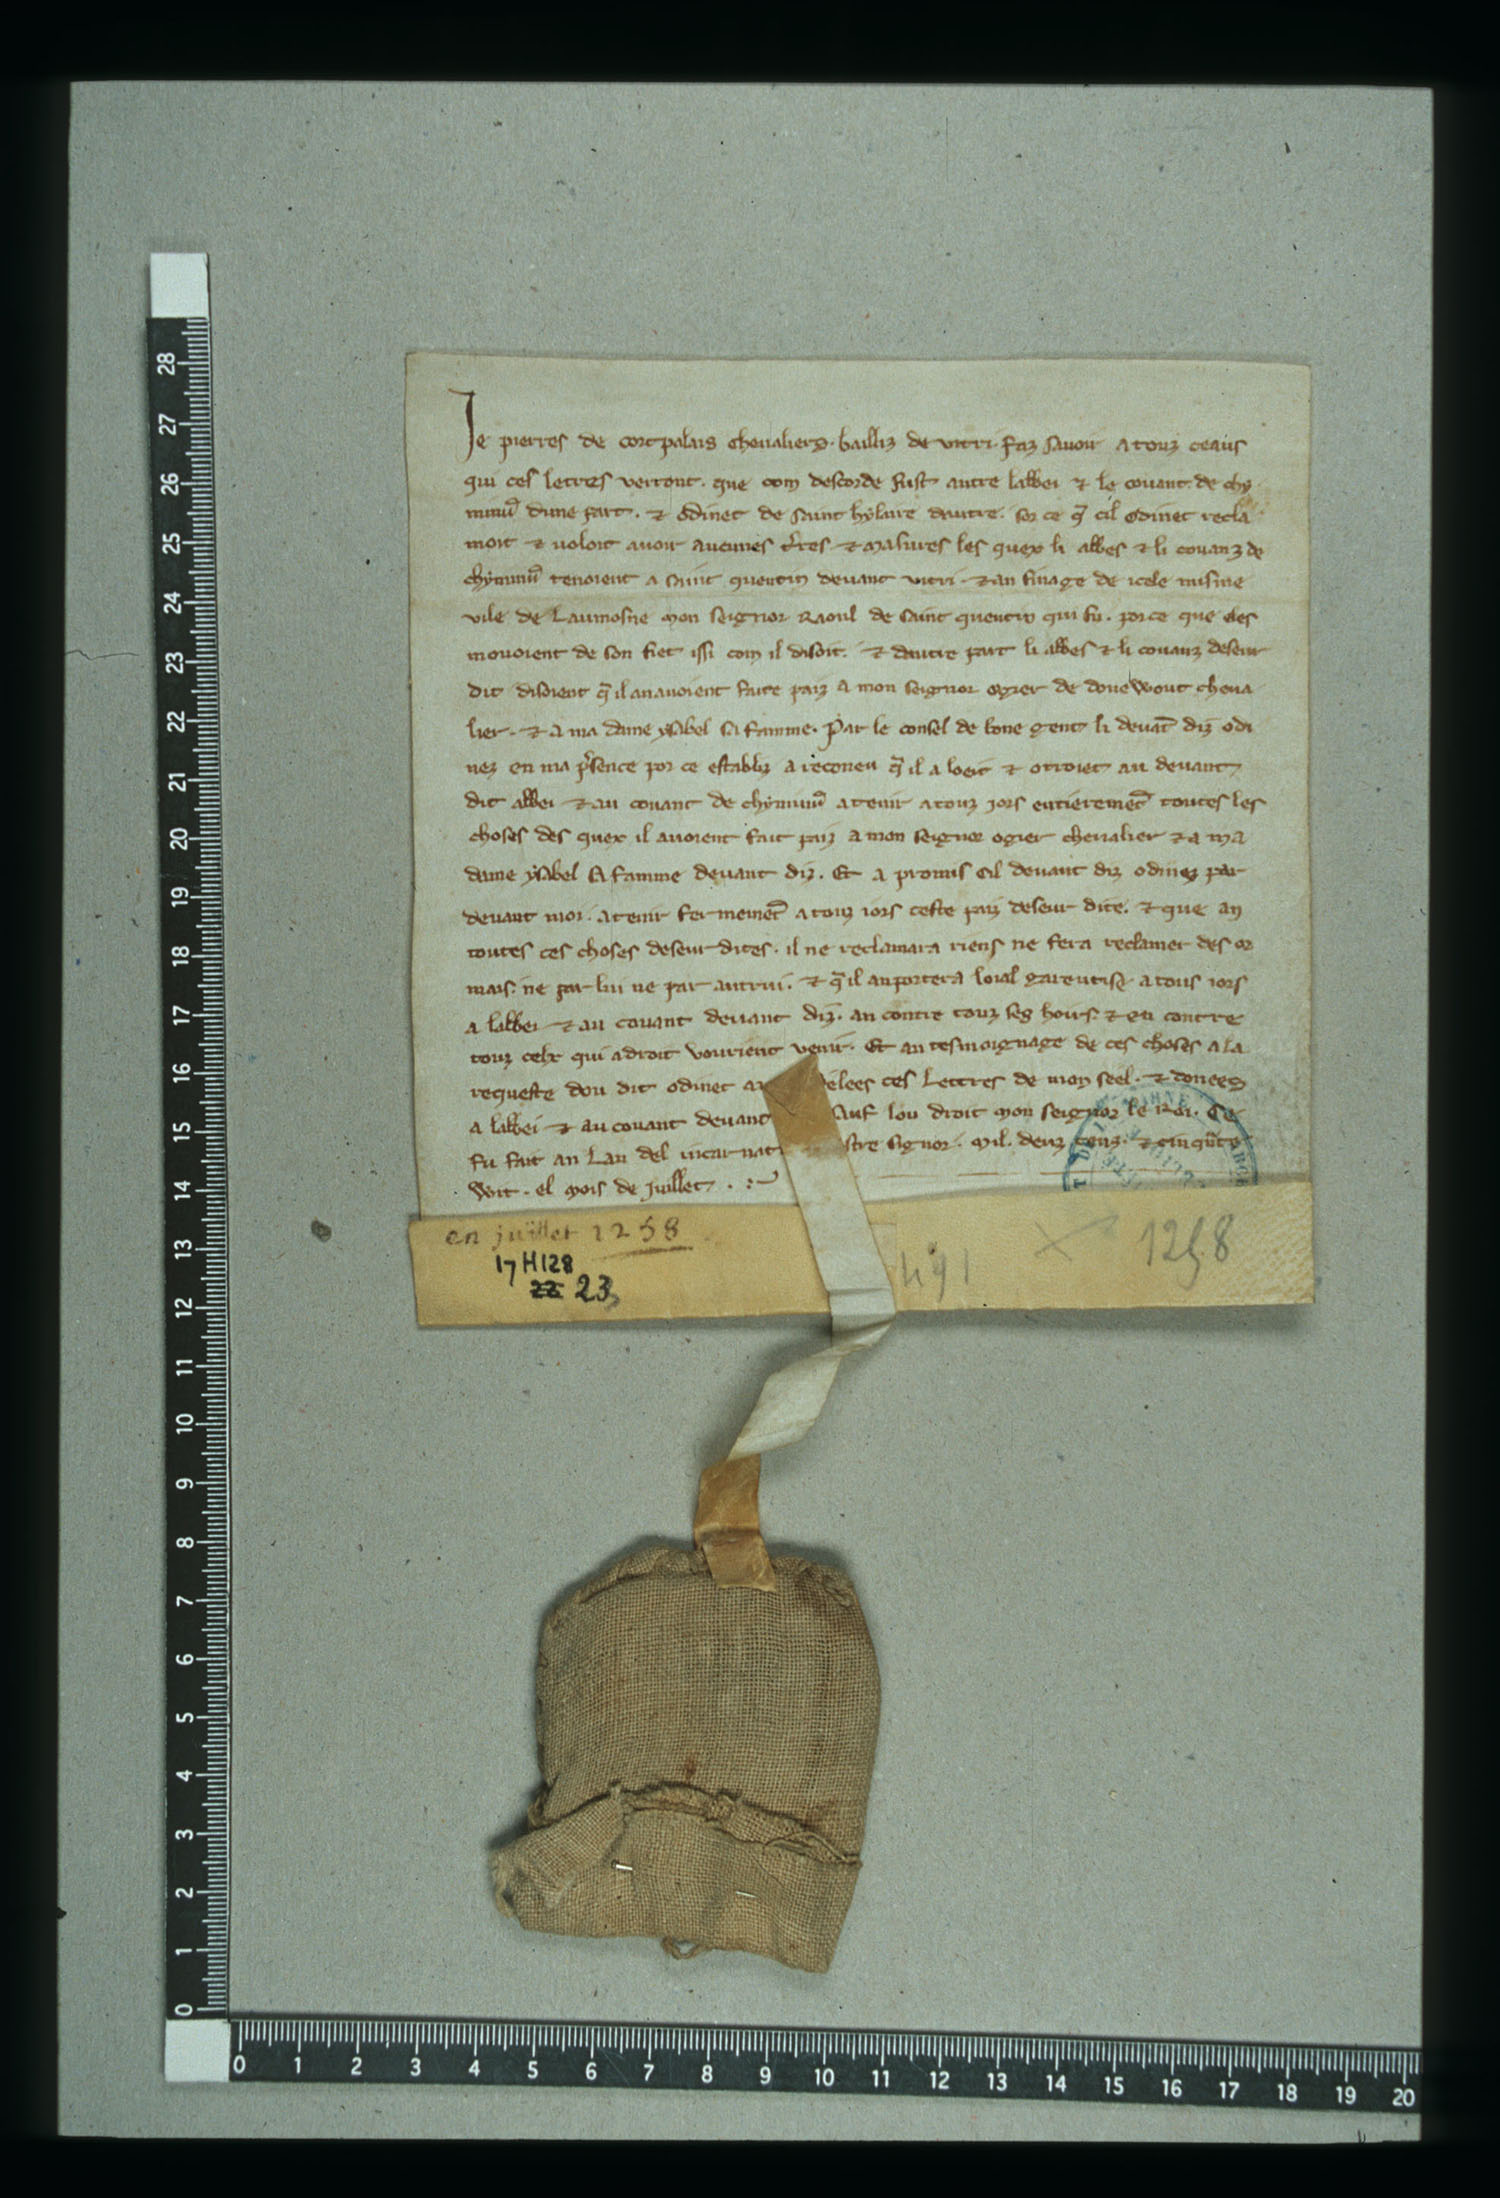 Je pierres de cortpalais cheualiers . bailliz de uitri . faz sauoir a touz ceaus
qui ces lettres verront . que com descorde fust antre labbei & le couant de chy
minū dune part . & odinet de saint hylaire dautre . sor ce q̄ cil odinet recla
moit & uoloit auoir aucunes t̾res & masures les quex li abbes & li couanz de
chyminū tenoient a saint quentin deuant uitri . & an finage de icele misme
vile de Laumosne mon seignor Raoul de saint quentin qui fu . por ce que eles
mouoient de son fiet issi com il disoit . & dautre part li abbes & li couanz deseur
dit disoient q̄ il an auoient faite paiz a mon seignor ogier de donewout cheua
lier . & a ma dame ysabel sa famme . Par le consel de bone gent li deuāt diz odi
nez en ma p̾sence por ce establiz a reconeu q̄ il a loei & otroiet au deuant
dit abbei & au couant de chyminū a tenir a touz jors entieremēt toutes les
choses des quex il auoient fait paiz a mon seignor ogier cheualier & a ma
dame ysabel sa famme deuant diz . Et a promis cil deuant diz odinez par
deuant moi . a tenir fermemēt a touz iors ceste paiz deseur dite . & que an
toutes ces choses deseur dites . il ne reclamara riens ne fera reclamer des or
mais . ne par lui ne par autrui . & q̄ il anportera loial garentise a tous iors
a labbei & au couant deuant diz . an contre touz ses hoirs . & en contre
touz celx qui a droit vourient venir . Et an tesmoignage de ces choses a la
requeste dou dit odinet elees ces Lettres de mon seel . & donees
a labbei & au couant deuant sauf lou droit mon seignor le Roi . Ce
fu fait an Lan del incarnat stre signor . mil . deuz cenz . & cinquāte
Wit . el mois de juillet .
en juillet 1258
17 H 128
22 23
491
1258
28 27 26 25 24 23 22 21 20 19 18 17 16 15 14 13 12 11 10 9 8 7 6 5 4 3 2 1 0
0 1 2 3 4 5 6 7 8 9 10 11 12 13 14 15 16 17 18 19 20